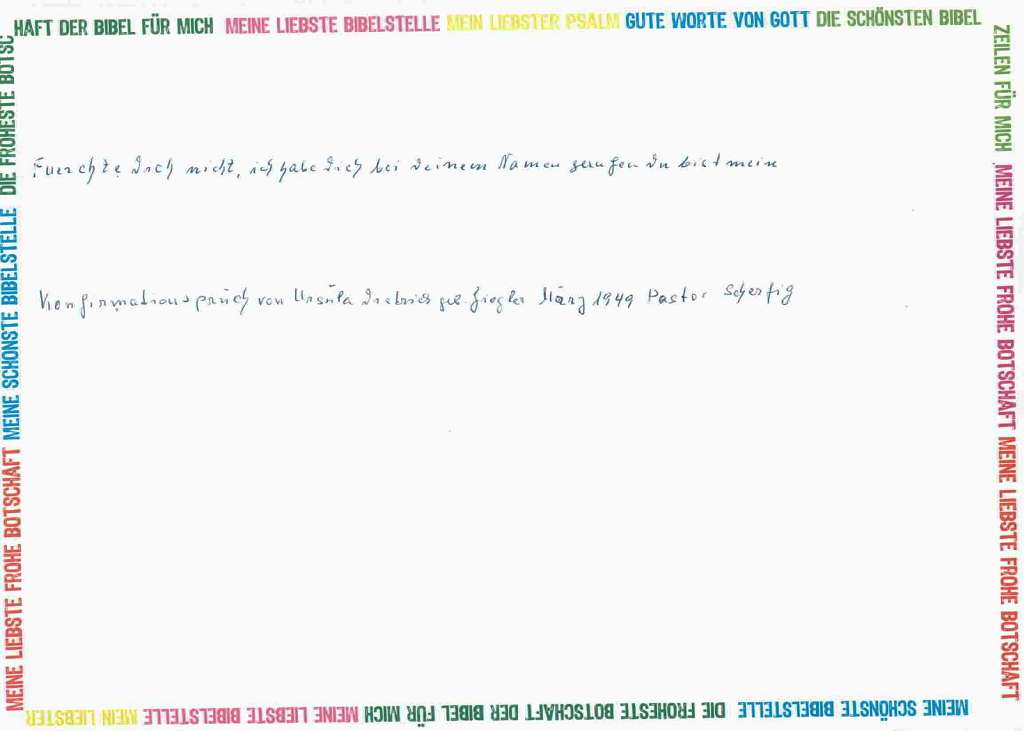 HAFT DER BIBEL FÜR MICH MEINE LIEBSTE BIBELSTELLE MEIN LIEBSTER PSALM GUTE WORTE VON GOTT DIE SCHÖNSTEN BIBEL
ZEILEN FÜR MICH MEINE LIEBSTE FROHE BOTSCHAFT MEINE LIEBSTE FROHE BOTSCHAFT
Fuerchte Dich nicht, ich habe Dich bei Deinem Namen gerufen Du bist mein
Konfirmationspruch von Ursula geb. Ziegler März 1949 Pastor Scherfig
MEINE SCHÖNSTE BIBELSTELLE DIE FROHESTE BOTSCHAFT DER BIBEL FÜR MICH MEINE LIEBSTE BIBELSTELLE MEIN LIEBSTER
MEINE LIEBSTE FROHE BOTSCHAFT MEINE SCHÖNSTE BIBELSTELLE DIE FROHESTE BOTSC